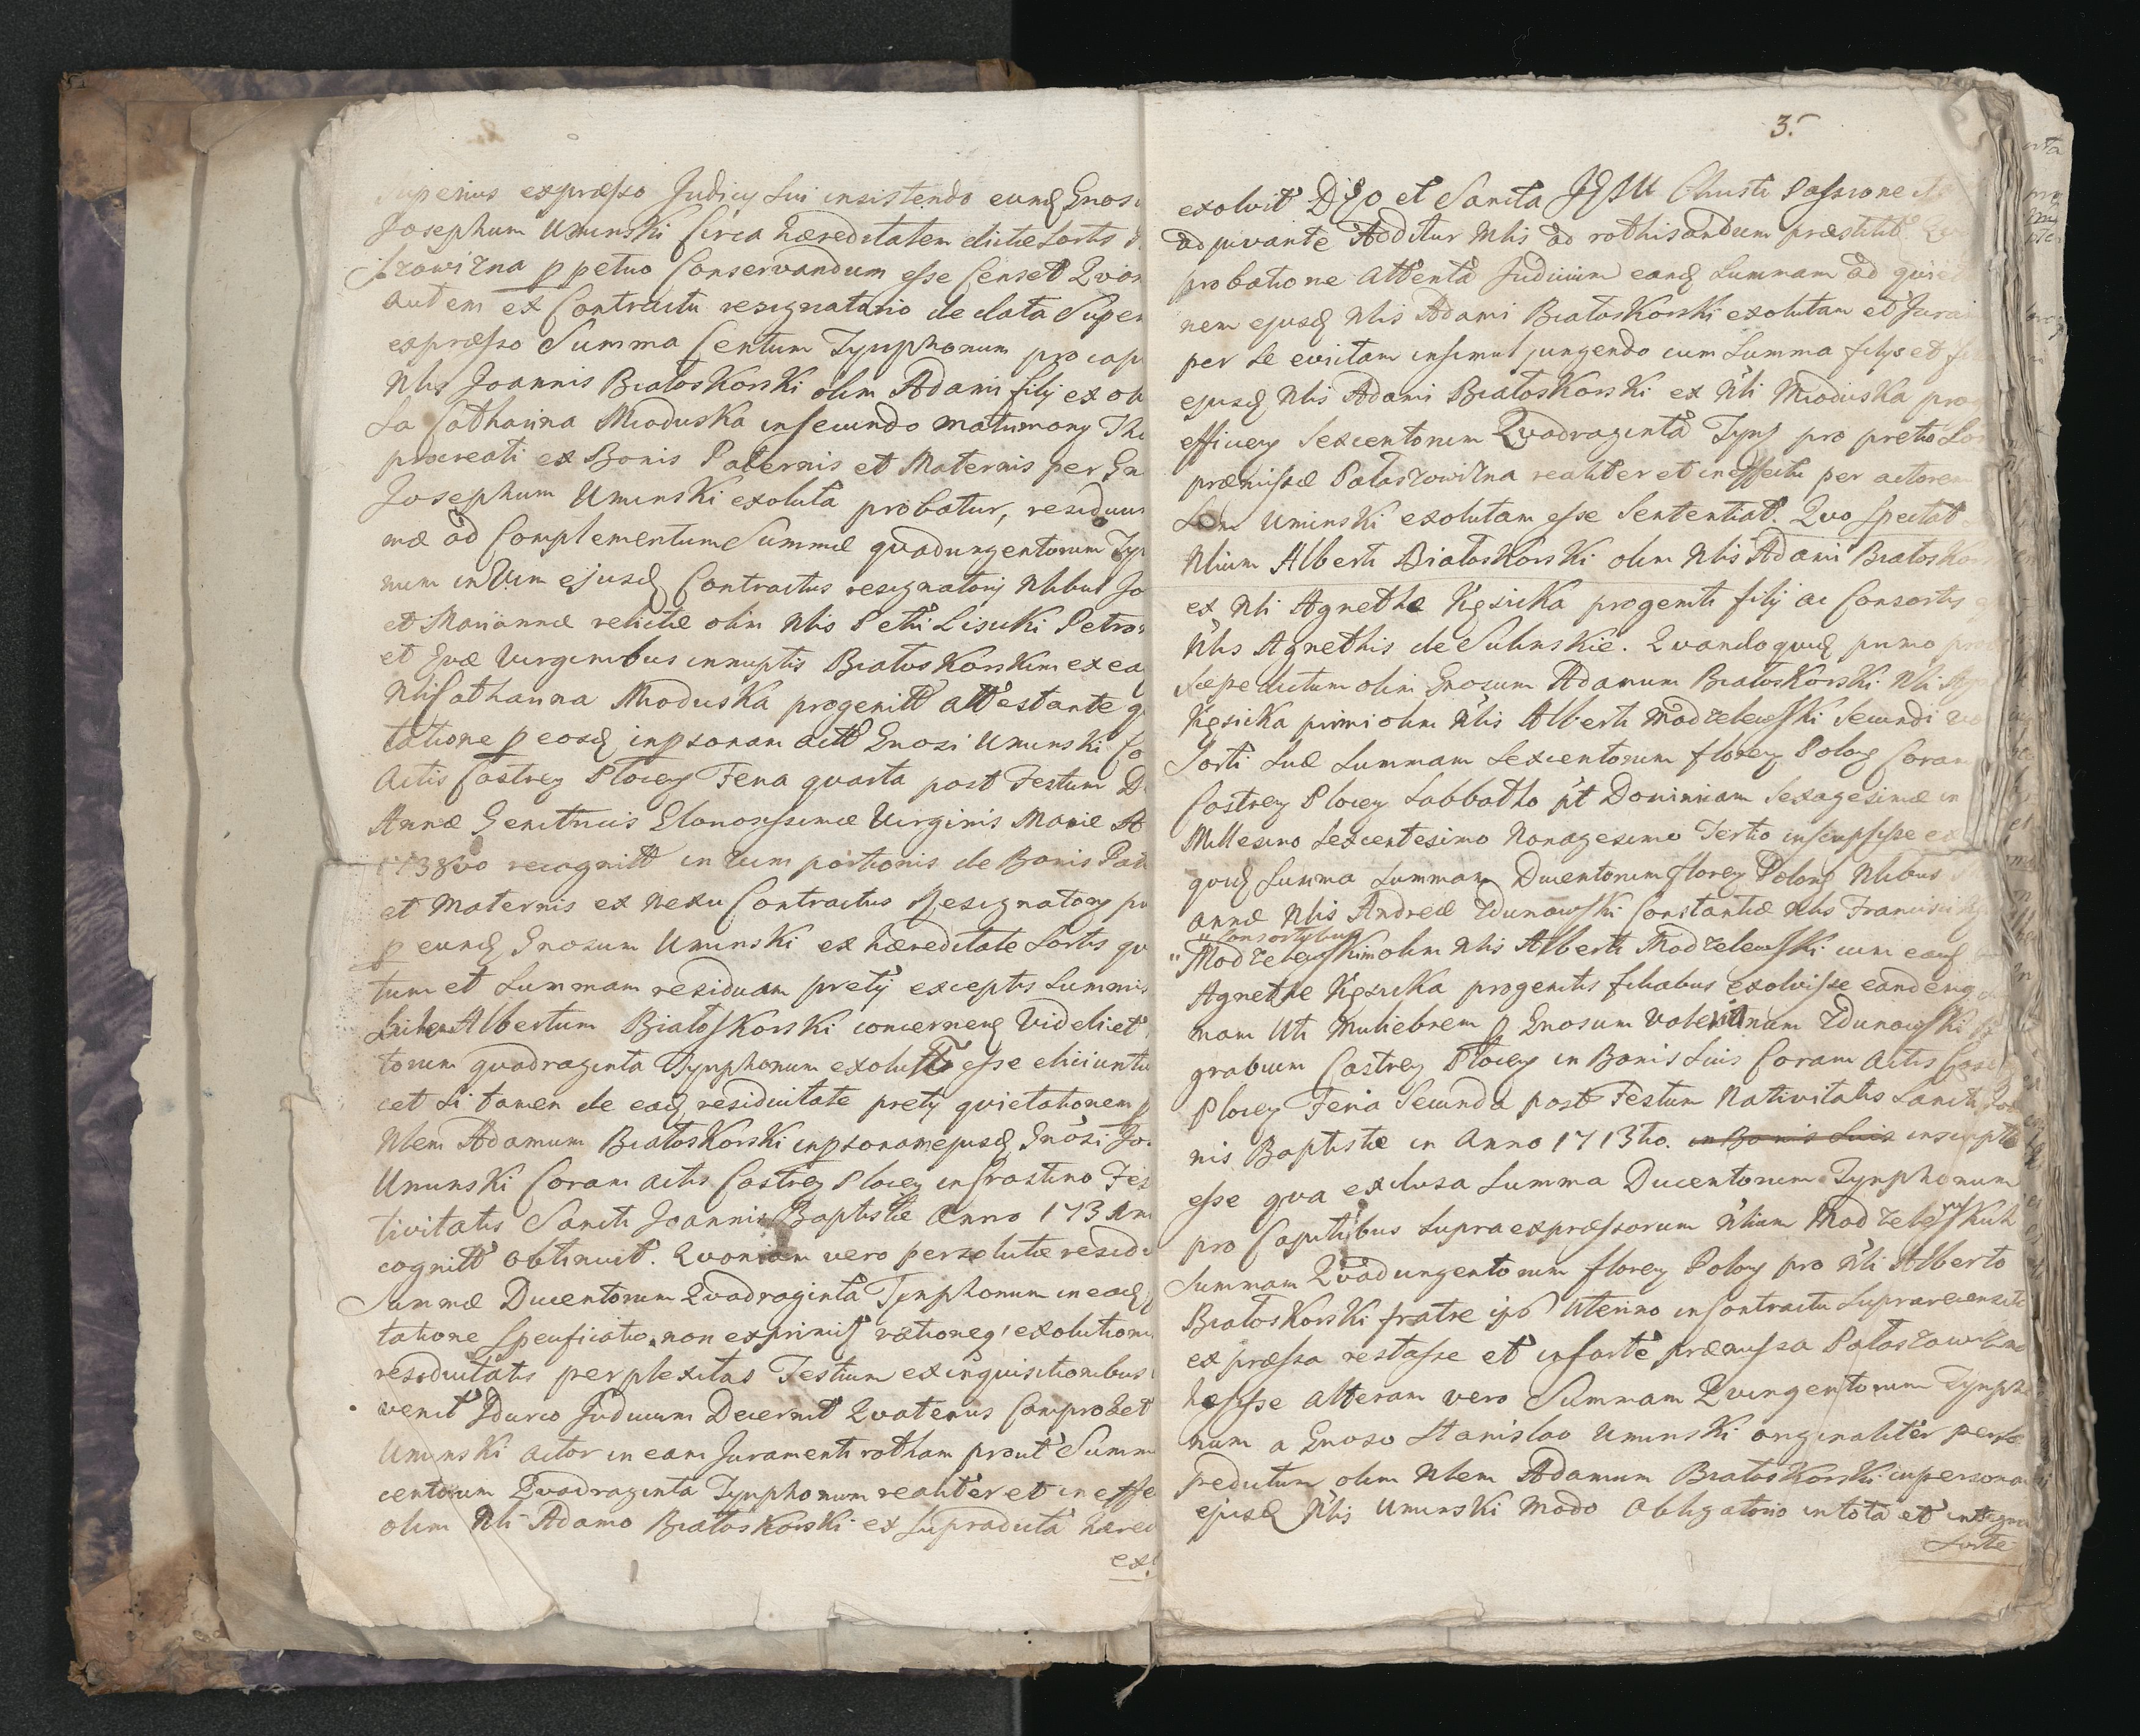 Superius expresso Judicij sui insistendo eund Gnos
Josephum Uminski Circa hæreditatem dictæ Sortis
szowizna ppetuo Conservandum esse Censet Quon
autem ex Contractu resignatorio de data Super
expresso Summa Centum Tynphonum pro cap
Nlis Joannis Białoskorski olim Adami filij ex
La Catharina Mioduska in secundo matrimony
procreati ex Bonis Paternis et Maternis per Gn
Josephum Uminski exoluta probatur, residuu
mæ ad Complementum Summæ quadringentorum Tyn
num in Vim ejusd Contractus resignatorij Nlibus Jo
et Mariannæ relictæ olim Nlis Petri Lisicki Petro
et Evæ Virginibus innuptis Białoskorskim ex ea
Nli Catharina Mioduska progenitt attestante q
tatione p eosd in psonam actt Gnosi Uminski Co
Actis Castren Plocen Feria quarta post Festum D
Annæ Genitricis Gloriosissimæ Virginis Mariæ A
1738vo recognitt in Vim portionis de Bonis Pat
et Maternis ex nexu Contractus Resignatorij pr
p eund Gnosum Uminski ex hæreditate Sortis qu
tum et Summam residuam pretij exceptis Summis
Albertum Białoskorski concernen Videlicet
torum quadraginta Tynphonum exolutt esse eliciuntu
cet si tamen de ead residuitate pretij quietationem p
Nlem Adamum Białoskorski in psonam ejusd Gnosi Jo
Uminski Coram actis Castren Plocen in Crastino Fes
tivitatis Sancti Joannis Baptistæ Anno 173
cognitt obtinuit. Quoniam vero persolutæ residu
Summæ Ducentorum Quadraginta Tynphonum in ead
tatione specificatio non exprimit
residuitatis perplexitas Testium ex inquisitionibus
venit Idcirco Judicium Decernit Quatenus Comprobet
Uminski actor in eam Juramenti rotham prout Summ
centorum Quadraginta Tynphonum realiter et in effe
olim Nli Adamo Białoskorski ex supradicta hæred
ex
3.
exolvit DEo et Sancta JESU Christi Passione
adjuvante Additur Nlis ad rothisandum præstitit
probatione attenta Judicium eand Summam ad quiet
nem ejusd Nlis Adami Białoskorski exolutam et Jura
per se evictam insimul jungendo cum Summa filijs et
ejusd Nlis Adami Białoskorski ex Nli Mioduska pro
efficien Sexcentorum Quadraginta Tynf pro pretio Sor
præmissæ Pałaszowizna realiter et in effectu per actorem
Uminski exolutam esse Sententiat. Quo Spectat
Nlium Alberti Białoskorski olim Nlis Adami Białosko
ex Nli Agnethe Kęsicka progeniti filij ac Consortis
Nlis Agnethis de Sulinskie. Quandoquid primo
sæpe dictum olim Gnosum Adamum Białoskorski Nli
Kęsicka primi olim Nlis Alberti Modzelewski secundi
Sorti suæ Summam Sexcentorum floren Polon Coram
Castren Plocen Sabbatho pt Dominicam Sexagesimæ in
Millesimo Sexcentesimo Nonagesimo Tertio inscripsisse ex
quid Summa Summam Ducentorum floren Polon Nlibus
annæ Nlis Andreæ Zdunowski Constantiæ Nlis Francisci
" Consortibus
" Modzelewskim olim Nlis Alberti Modzelewski cum ead
Agnethe Kęsicka progenitis filiabus exolvisse eandenq
nam Uti Muliebrem p Gnosum Valerianum Zdunowski
grabium Castren Plocen in Bonis suis Coram Actis
Plocen Feria Secunda post Festum Nativitatis Sancti Joa
nis Baptistæ in Anno 1713tio. in Bonis Suis inscripta
esse qua exclusa Summa Ducentorum Tynphonum
pro Capitibus supra expressorum Nlium Modzelewskich
Summam Quadringentorum floren Polon pro Nli Alberto
Białoskorski fratre ipso Uterino in Contractu supra recensito
expressa restasse et in sorte præmissa Pałaszowizna
hæsisse alteram vero Summam Quingentorum Tynpho
num a Gnoso Stanislao Uminski originaliter per
predictum olim Nlem Adamum Białoskorski in persona
ejusd Nlis Uminski modo Obligatorio in tota et integra
Sorte